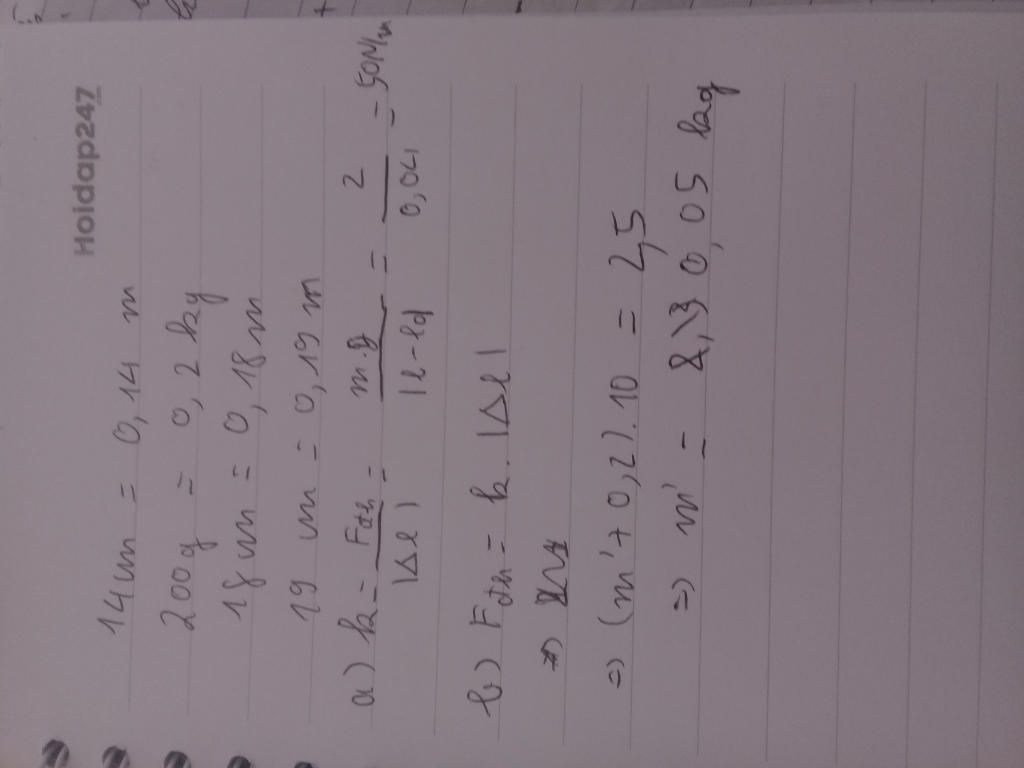 Hoidap247
14cm = 0,14 m
200g = 0,2 kg
18cm = 0,18m
19 cm = 0,19 m
a) k = Fđh / |Δl| = m.g / |l-lo| = 2 / 0,04 = 50N/m
b) Fđh = k. |Δl|
=>
=> (m'+0,2).10 = 2,5
=> m' = 0,05 kg